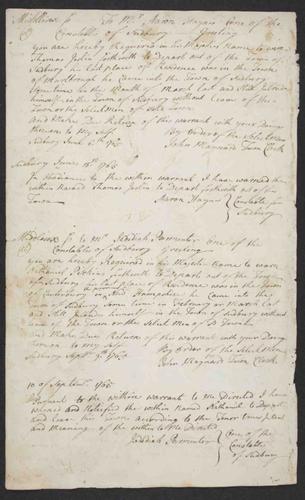 Middlesex ss To Mr Aaron Haynes one of the
Constables of Sudbury Greeting
You are hereby Required in his Majties Name to warn
Thomas Joslin forthwith to Depart out of the town of
Sudbury his last place of Residence was in the Town
of Marlbrough he Came into the Town of Sudbury
Sometime in the Month of March Last and Still
himself in the town of Sudbury without Leave of the
Town or the Selectmen of sd Town
And Make Due Return of this warrant with your Doings
thereon to my Self By Order of the Selectmen
Sudbury June 1765 John Maynard Town Clerk
Sudbury June 18th 1765
In Obedience to the within warrant I have warned the
within Named Thomas Joslin to Depart forthwith out of sd
Town Aaron Haynes Constable for
Sudbury
Middlesex ss To Mr Jedidiah Parmenter One of the
Constables of Sudbury Greeting
you are hereby Required in his Majties Name to warn
Nathaniel Perkins forthwith to Depart out of the Town
of Sudbury his last place of Residence was in the Town
of Canterbury in New Hampshire he Came into the
town of Sudbury some time in February or March Last
and Still himself in the Town of Sudbury without
Leave of the Town or the Select Men of sd Town
And Make Due Return of this warrant with your Doings
thereon to my self By Order of the Select Men
Sudbury Septr 9th 1765 John Maynard Town Clerk
10 of September 1765
Persuant to the within warrant to Me Directed I have
warned and Notified the within Named Nathaniel to Depart
and Leave this town according to the Tenor
and Meaning of the within to Me Directed
Jedidiah Parmenter One of the
Constables
of Sudbury